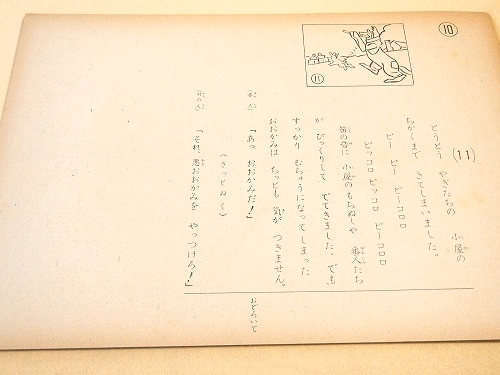 ⑩
⑪
(11)
とうとう やぎたちの 小屋の
ちかくまで きてしまいました。
ピー ピー ピーコロロ
ピッコロ ピッコロ ピーコロロ
笛の音に 小屋のもちぬしや 職人たち
が びっくりして でてきました。でも、
すっかり むちゅうになってしまった
おおかみは ちっとも 気が つきません。
「あっ おおかみだ！」
(さっとぬく)
「それ、悪おおかみを やっつけろ！」
おどろいて